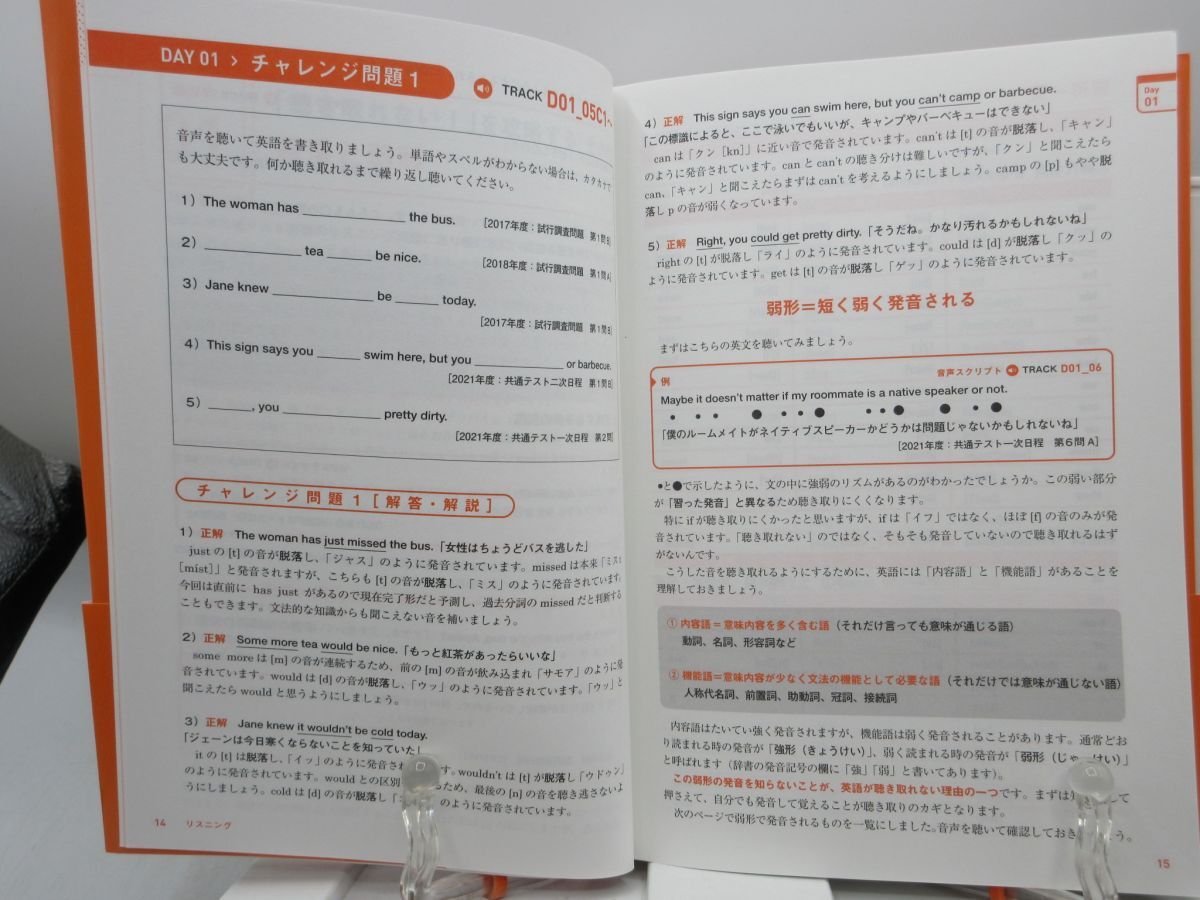 DAY 01 > チャレンジ問題 1
TRACK D01_05C1~
音声を聴いて英語を書き取りましょう。単語やスペルがわからない場合は、カタカナで
も大丈夫です。何か聴き取れるまで繰り返し聴いてください。
1）The woman has ______ the bus.
［2017年度：試行調査問題 第1問B］
2）______ tea ______ be nice.
［2018年度：試行調査問題 第1問A］
3）Jane knew ______ be ______ today.
［2017年度：試行調査問題 第1問B］
4）This sign says you ______ swim here, but you ______ or barbecue.
［2021年度：共通テスト二次日程 第1問B］
5）______, you ______ pretty dirty.
［2021年度：共通テスト一次日程 第2問］
チャレンジ問題 1［解答・解説］
1）正解 The woman has just missed the bus.「女性はちょうどバスを逃した」
justの[t]の音が脱落し、「ジャス」のように発音されています。missedは本来「ミスト
[míst]」と発音されますが、こちらも[t]の音が脱落し、「ミス」のように発音されています。
今回は直前にhas justがあるので現在完了形だと予測し、過去分詞のmissedだと判断する
こともできます。文法的な知識からも聞こえない音を補いましょう。
2）正解 Some more tea would be nice.「もっと紅茶があったらいいな」
some moreは[m]の音が連続するため、前の[m]の音が飲み込まれ「サモア」のように発
音されています。wouldは[d]の音が脱落し、「ウッ」のように発音されています。「ウッ」と
聞こえたらwouldと思うようにしましょう。
3）正解 Jane knew it wouldn't be cold today.
「ジェーンは今日寒くならないことを知っていた」
itの[t]は脱落し、「イッ」のように発音され 。wouldn'tは[t]が脱落し「ウドゥン」
のように発音されています。wouldとの区別 ため、最後の[n]の音を聴き逃さないよ
うにしましょう。coldは[d]の音が脱落し「 のように発音されています。
14 リスニング
Day
01
4）正解 This sign says you can swim here, but you can't camp or barbecue.
「この標識によると、ここで泳いでもいいが、キャンプやバーベキューはできない」
canは「クン［kn］」に近い音で発音されています。can'tは[t]の音が脱落し、「キャン」
のように発音されています。canとcan'tの聴き分けは難しいですが、「クン」と聞こえたら
can、「キャン」と聞こえたらまずはcan'tを考えるようにしましょう。campの[p]もやや脱
落しpの音が弱くなっています。
5）正解 Right, you could get pretty dirty.「そうだね。かなり汚れるかもしれないね」
rightの[t]が脱落し「ライ」のように発音されています。couldは[d]が脱落し「クッ」の
ように発音されています。getは[t]の音が脱落し「ゲッ」のように発音されています。
弱形＝短く弱く発音される
まずはこちらの英文を聴いてみましょう。
例 音声スクリプト TRACK D01_06
Maybe it doesn't matter if my roommate is a native speaker or not.
「僕のルームメイトがネイティブスピーカーかどうかは問題じゃないかもしれないね」
［2021年度：共通テスト一次日程 第6問A］
•と●で示したように、文の中に強弱のリズムがあるのがわかったでしょうか。この弱い部分
が「習った発音」と異なるため聴き取りにくくなります。
特にifが聴き取りにくかったと思いますが、ifは「イフ」ではなく、ほぼ[f]の音のみが発
音されています。「聴き取れない」のではなく、そもそも発音していないので聴き取れるはず
がないんです。
こうした音を聴き取れるようにするために、英語には「内容語」と「機能語」があることを
理解しておきましょう。
① 内容語＝意味内容を多く含む語（それだけ言っても意味が通じる語）
動詞、名詞、形容詞など
② 機能語＝意味内容が少なく文法の機能として必要な語（それだけでは意味が通じない語）
人称代名詞、前置詞、助動詞、冠詞、接続詞
内容語はたいてい強く発音されますが、機能語は弱く発音されることがあります。通常どお
り読まれる時の発音が「強形（きょうけい）」、弱く読まれる時の発音が「弱形（じゃ けい）」
と呼ばれます（辞書の発音記号の欄に「強」「弱」と書いてあります）。
この弱形の発音を知らないことが、英語が聴き取れない理由の一つです。まずは して
押さえて、自分でも発音して覚えることが聴き取りのカギとなります。
次のページで弱形で発音されるものを一覧にしました。音声を聴いて確認しておき ょう。
15